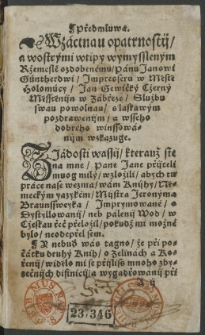 Předmluwa.
Wzáctnau opatrnostij/
a wostrými wtipy wymysslenym
Ržemesle ozdobenému/ Pánu Janowi
Güntherowi/ Impresseru w Městě
Holomúcy/ Jan Černý
Miesstěnjn w Zábřeze/ Službu
swau powolnau/ s laskawým
pozdrawenjm/ a wsseho
dobrého winssowa-
njm wzkazuge.
Žádosti wassij/ kterauž ste
na mne/ Pane Jane přijteli
muog milý/ wzložili/ abych tu
prácē nase wezma/ wám Knihy/ Ně-
meckým yazykem/ Mistra Jeronyma
Braunsweyka/ Imprymowané/ o
Dystyllowanij/ neb pálenij Wod/ w
Cžeskau řeč přeložil/ pokudž mi možné
bylo/ neodepřel sem.
A nebud wás tagno/ že při po-
čátku druhý Knih/ o Zelinách a Ko-
řenij/ widělo mi se přijliss mnoho zby-
tečných difinicij/ a wygadřowanij při
23.346